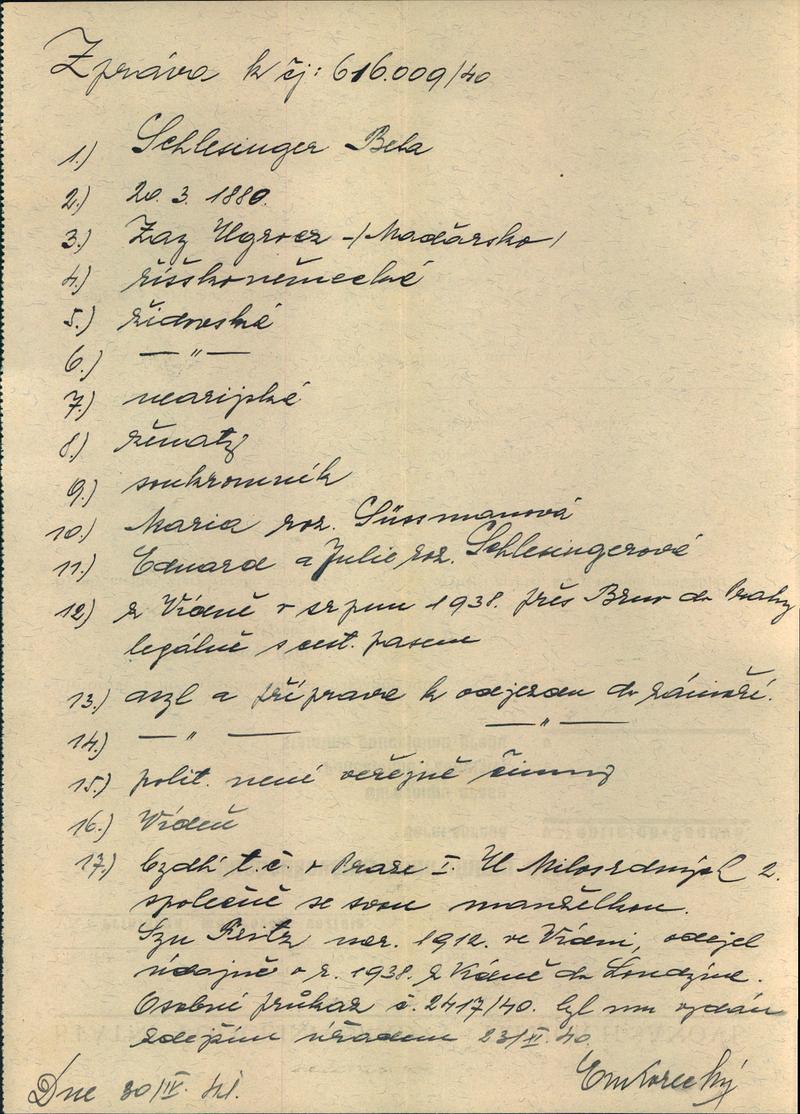 Zpráva k čj: 616.009/40
1.) Schlesinger Bela
2.) 20. 3. 1880.
3.) Zay Ugrocz -/Maďarsko/
4.) říšskoněmecké
5.) židovské
6.) — " —
7.) nearijské
8.) ženatý
9.) soukromník
10.) Maria roz. Süssmanová
11.) Eduard a Julie roz. Schlesingerová
12.) z Vídně v srpnu 1938. přes Brno do Prahy
legálně s cest. pasem
13.) azyl a příprava k odjezdu do zámoří.
14.) — " — — " —
15.) polit. není veřejně činný
16.) Vídeň
17.) bydlí t. č. v Praze I. U Milosrdných 2.
společně se svou manželkou.
Syn Fritz nar. 1912. ve Vídni, odejel
údajně v r. 1938. z Vídně do Londýna.
Osobní průkaz č. 2417/40. byl mu vydán
zdejším úřadem 40.
Dne 30/IV. 41.